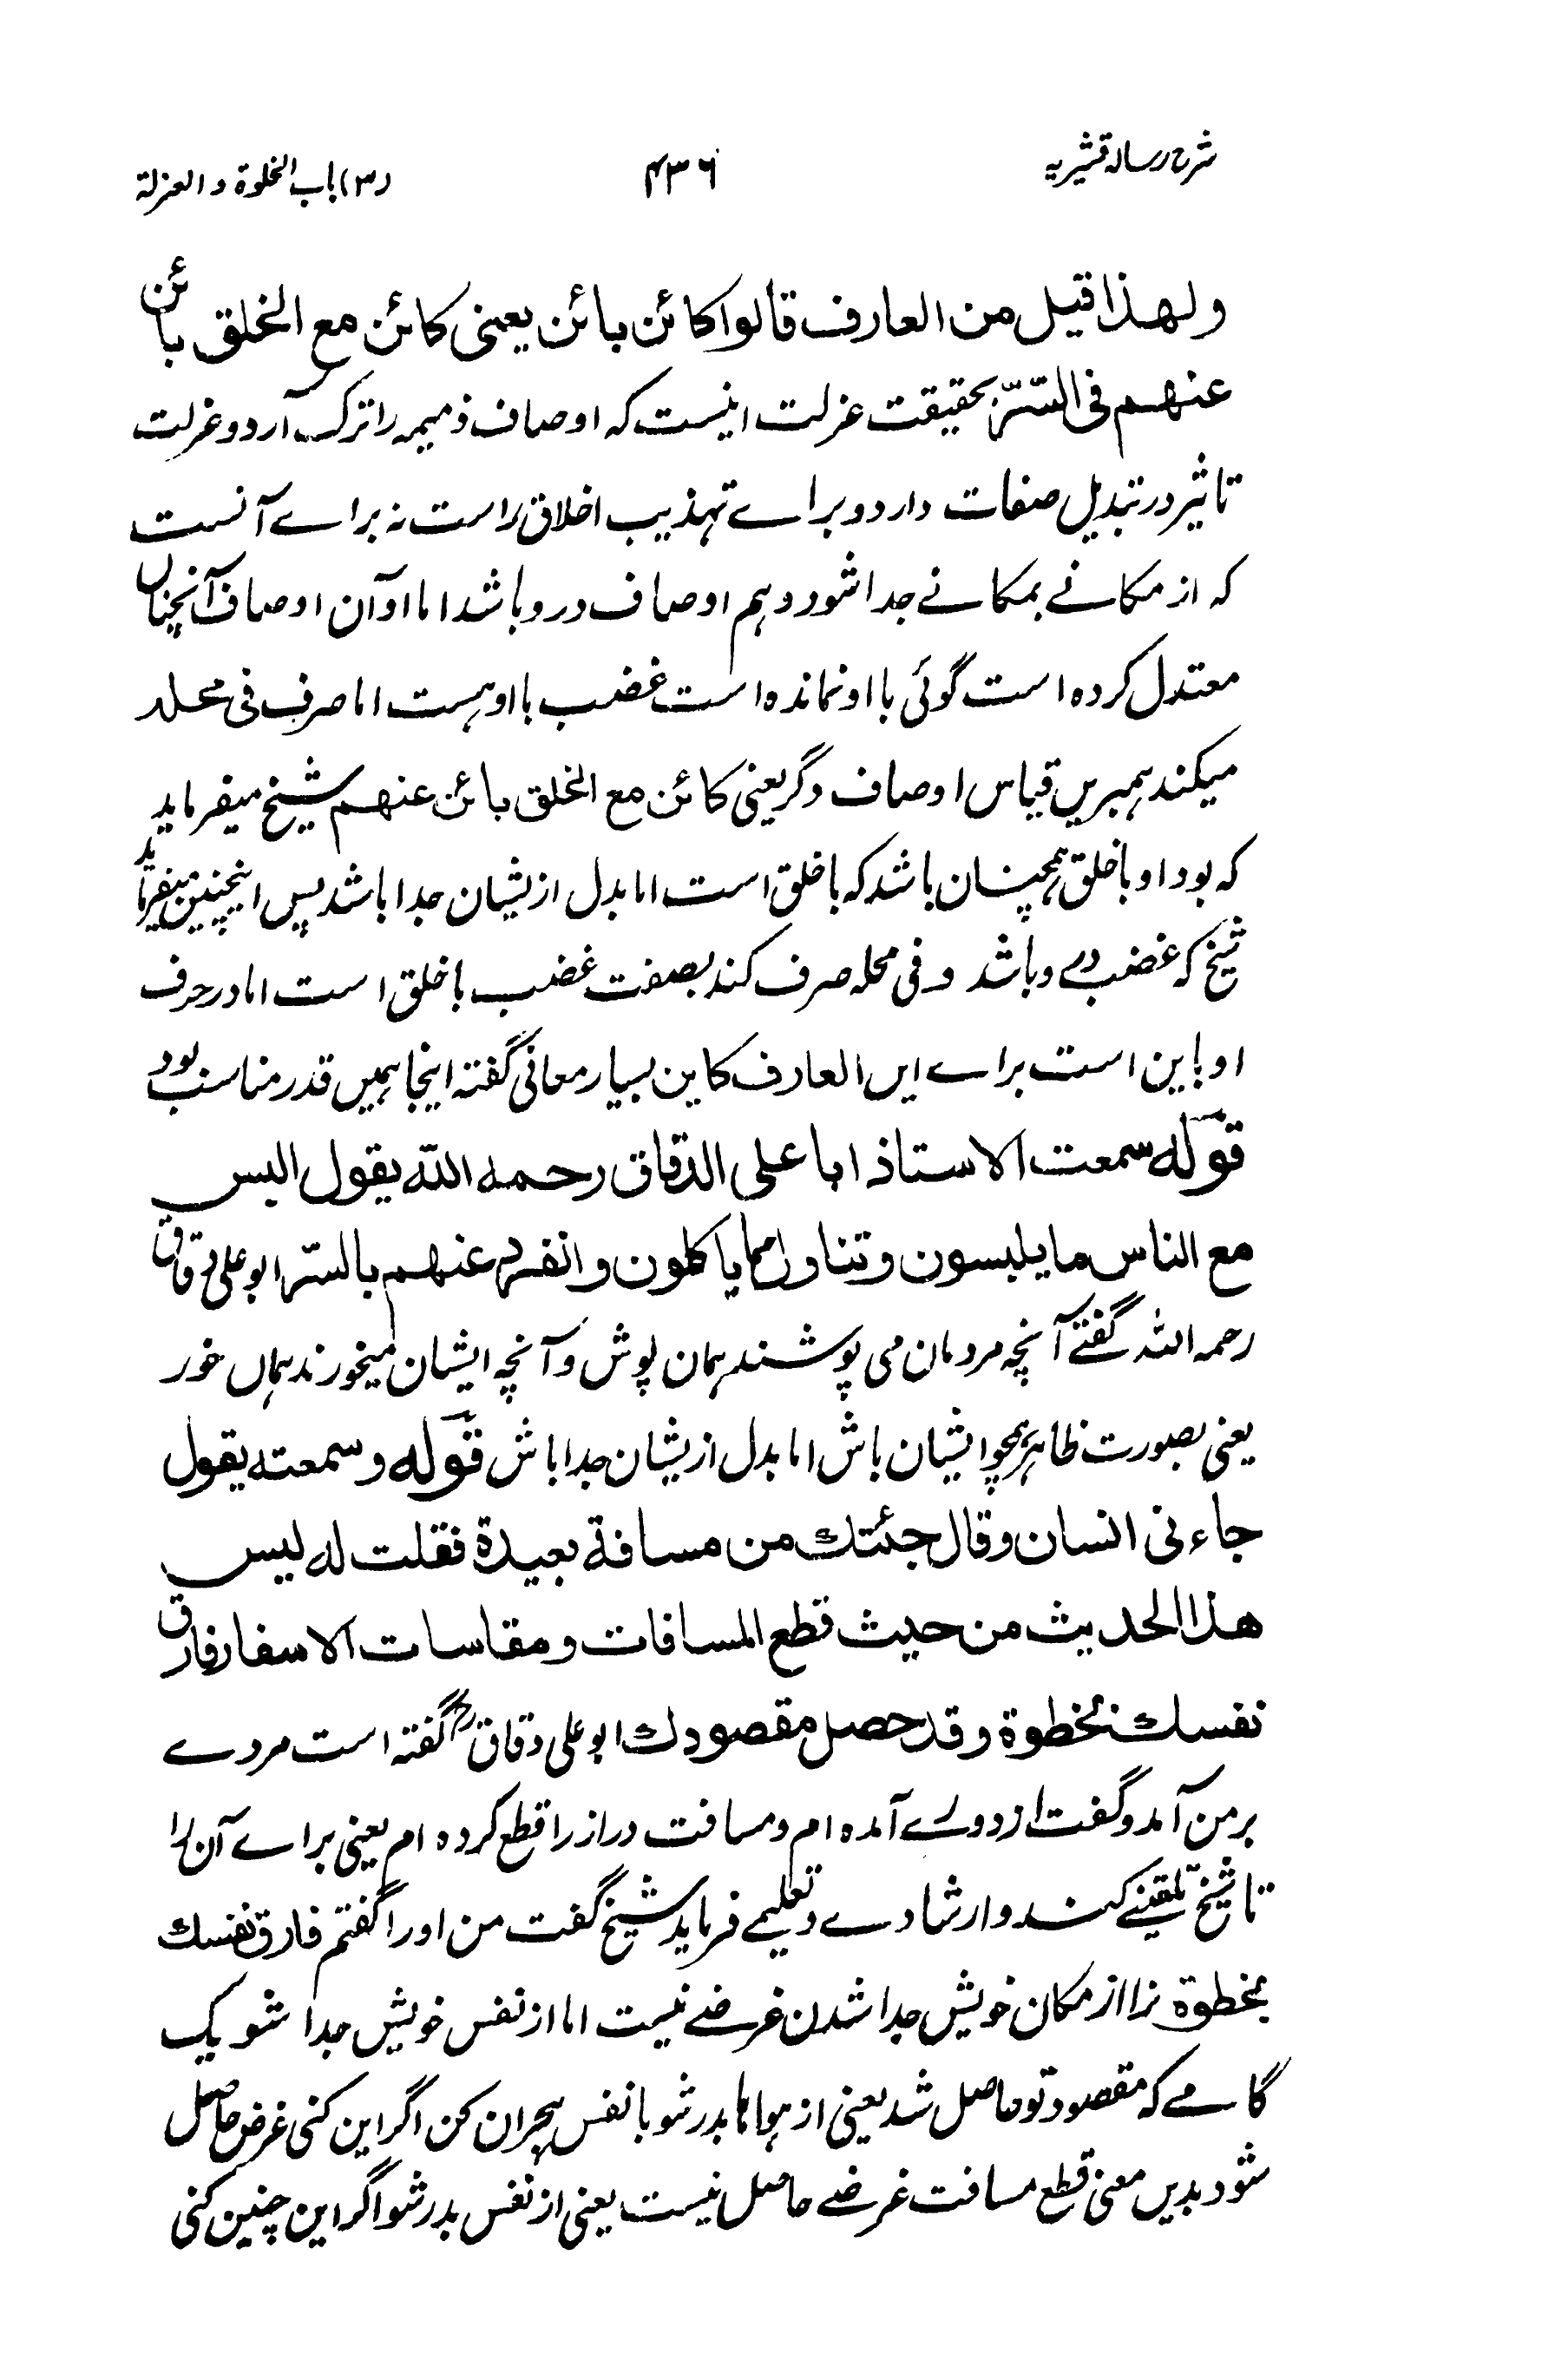 شرح رسالہ قشیریہ
۴۳۶
(۳) باب الخلوة و العزلة
ولهذا قيل من العارف قالوا كائن بائن يعنى كائن مع الخلق بائن
عنهم فى السّرّ بحقیقت عزلت اینست کہ اوصاف ذمیمہ را ترک آرد و عزلت
تاثیر در تبدیل صفات دارد و براے تہذیب اخلاق راست نہ براے آنست
کہ از مکانے بمکانے جدا شود و ہم اوصاف درو باشد اما او آن اوصاف آنچناں
معتدل کردہ است گوئی با او نماندہ است غضب با او ہست اما صرف فی محلہ
میکند ہمبریں قیاس اوصاف دگر یعنی کائن مع الخلق بائن عنهم شیخ میفرماید
کہ بود او با خلق ہمچنان باشد کہ با خلق است اما بدل ازیشان جدا باشد پس اینچنین میفرماید
شیخ کہ غضب درے و باشد و فی محلہ صرف کند بصفت غضب با خلق است اما در حرف
او باین است براے ایں العارف کاین بسیار معانی گفتہ اینجا ہمیں قدر مناسب بود
قوله سمعت الاستاذ ابا على الدقاق رحمه الله يقول البس
مع الناس ما يلبسون وتناول مما ياكلون وانفرد عنهم بالسّر ابو علی دقاق
رحمہ اللہ گفتے آنچہ مردمان می پوشند ہمان پوش و آنچہ ایشان میخورند ہماں خور
یعنی بصورت ظاہر ہمچو ایشان باش اما بدل ازیشان جدا باش قوله وسمعته يقول
جاءنى انسان وقال جئتك من مسافة بعيدة فقلت له ليس
هذا الحديث من حيث قطع المسافات ومقاسات الاسفار فارق
نفسك بخطوة وقد حصل مقصودك ابو علی دقاق رح گفتہ است مردے
بر من آمد و گفت از دورے آمدہ ام و مسافت دراز را قطع کردہ ام یعنی براے آن را
تا شیخ تلقینے کند و ارشادے و تعلیمے فرماید شیخ گفت من او را گفتم فارق نفسك
بخطوة ترا از مکان خویش جدا شدن غرضے نیست اما از نفس خویش جدا شو یک
گامے کہ مقصود تو حاصل شد یعنی از ہواہا بدر شو با نفس ہجران کن اگر این کنی غرض حاصل
شود بدیں معنی قطع مسافت غرضے حاصل نیست یعنی از نفس بدر شو اگر این چنین کنی